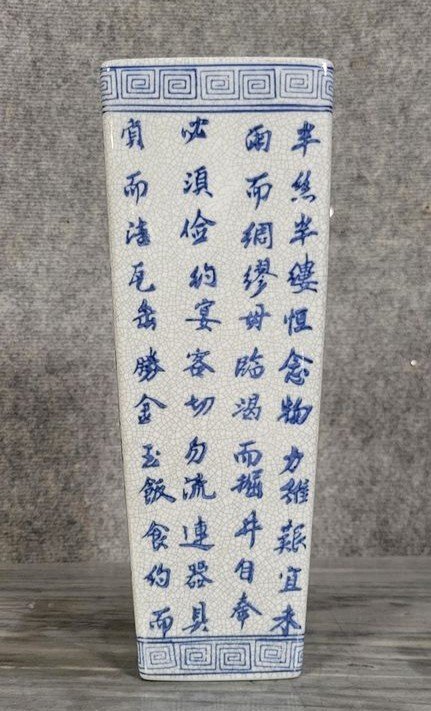 半絲半縷恒念物力維艱宜未
雨而綢繆毋臨渴而掘井自奉
必須儉約宴客切勿流連器具
質而潔瓦缶勝金玉飯食約而